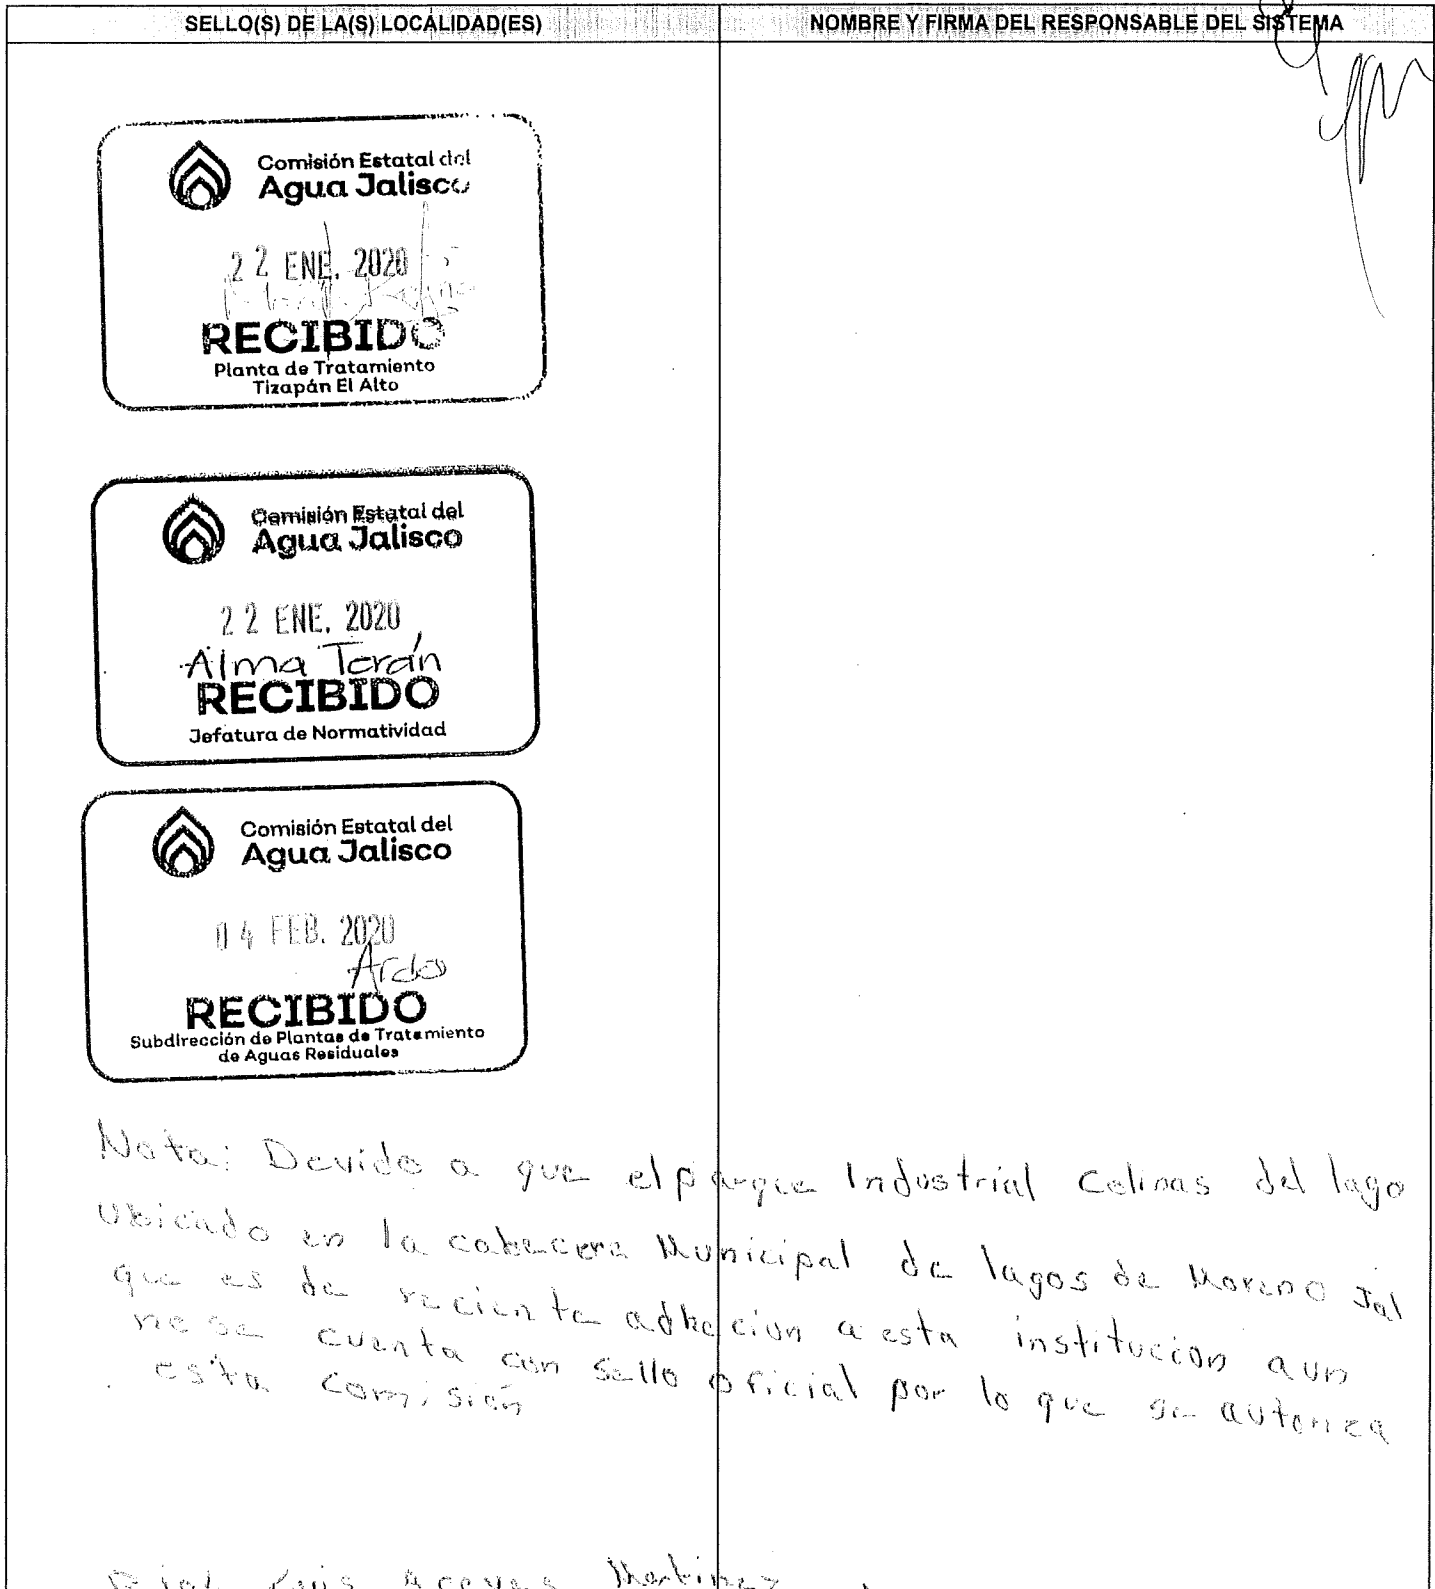 SELLO(S) DE LA(S) LOCALIDAD(ES)
NOMBRE Y FIRMA DEL RESPONSABLE DEL SISTEMA
Comisión Estatal del
Agua Jalisco
22 ENE. 2020
RECIBIDO
Planta de Tratamiento
Tizapán El Alto
Comisión Estatal del
Agua Jalisco
22 ENE. 2020
Alma Terán
RECIBIDO
Jefatura de Normatividad
Comisión Estatal del
Agua Jalisco
04 FEB. 2020
RECIBIDO
Subdirección de Plantas de Tratamiento
de Aguas Residuales
Nota: Devido a que el parque Industrial Colinas del lago
Ubicado en la cabecera Municipal de lagos de Moreno Jal
que es de reciente adhecion a esta institucion aun
no se cuenta con sello oficial por lo que se autoriza
esta comisión
Luis Aceves Martinez